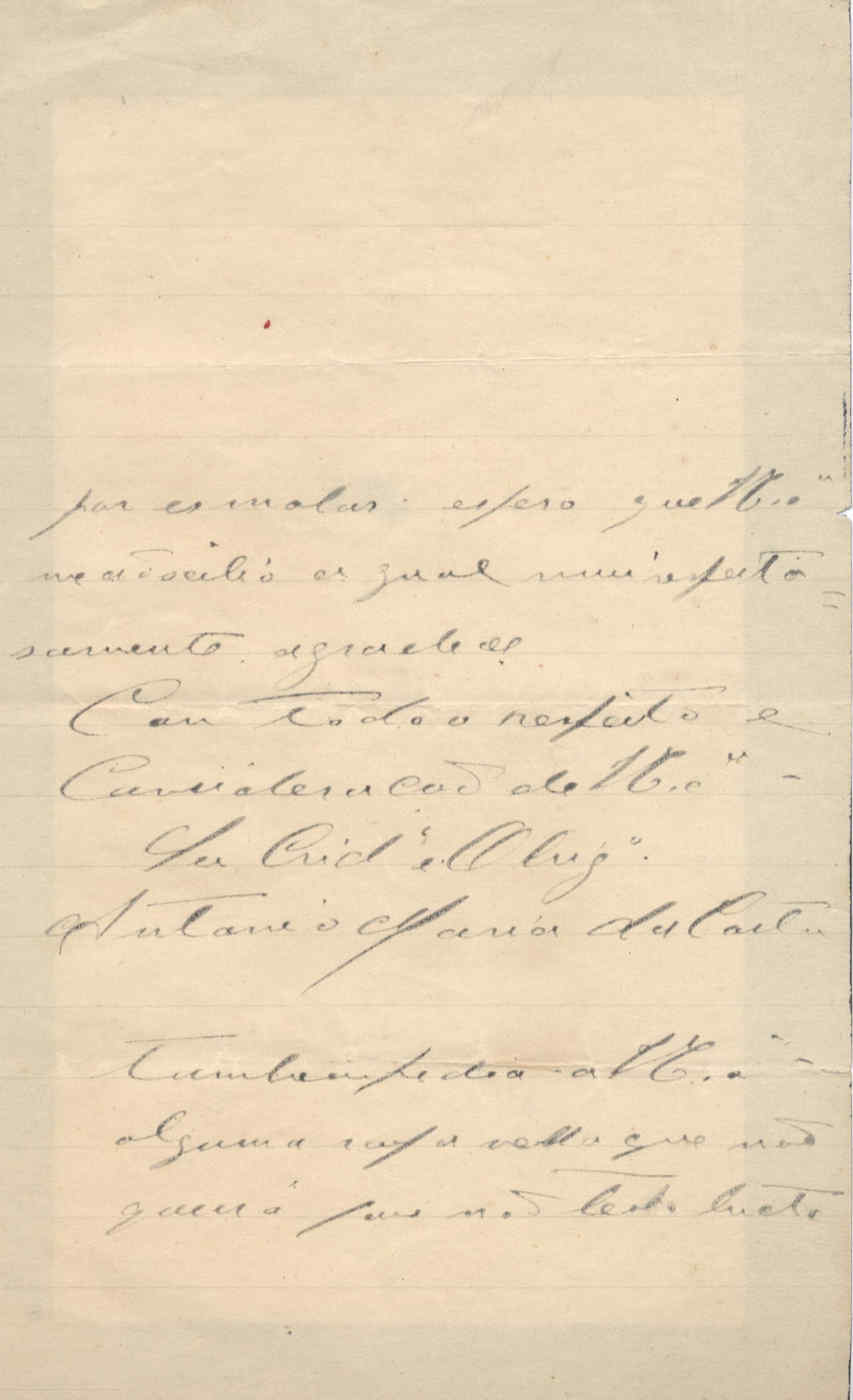 por esmolar. espero que V. E.ª
me auseilio a qual mui respeito=
samente. agradese
Con todo o respeito e
Consideracaõ de V. E.ª -
Seu Cridº e Obrigº.
Antonio Maria da Costa
tambem pedia a V. E.ª -
alguma ropa velha que naõ
queira pois naõ tenho lucto